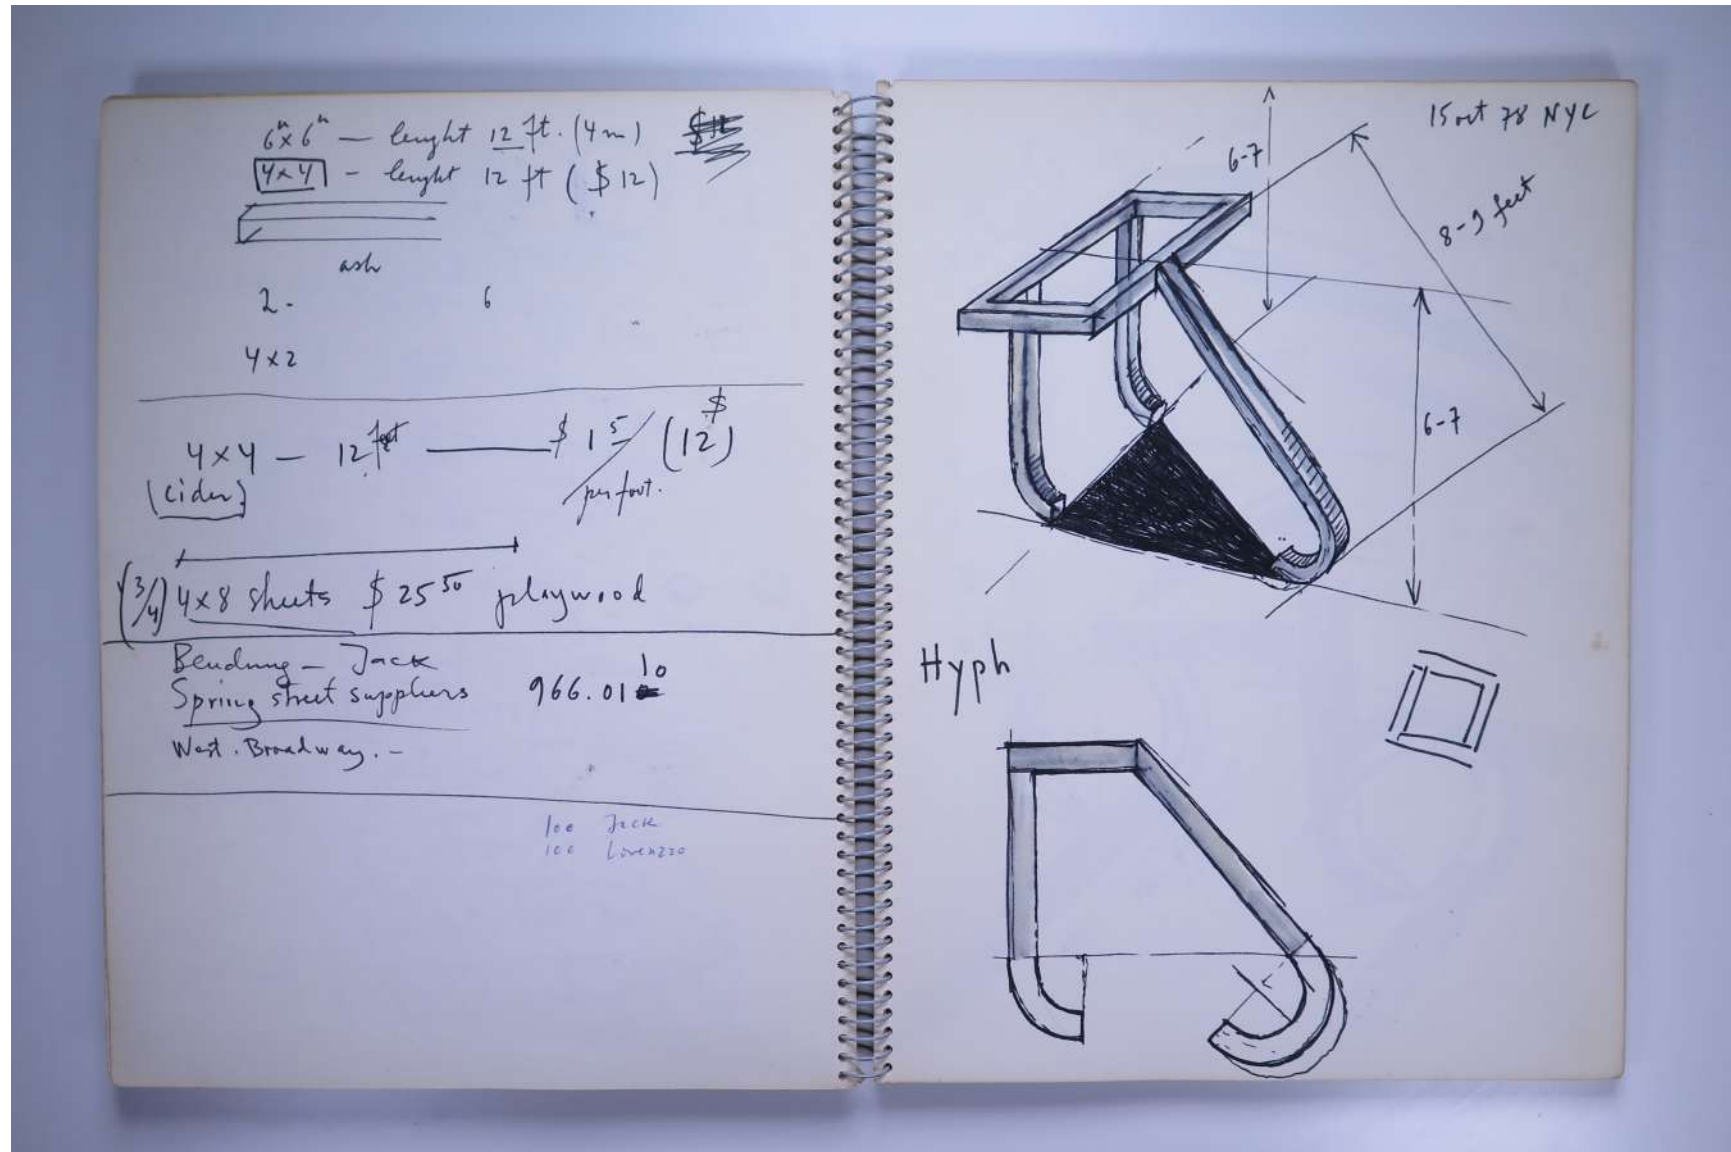 6" x 6" — lenght 12 ft. (4m) $12
4x4 - lenght 12 ft ($12)
ash
2 - 6
4x2
4x4 — 12 feet — $ 1 5 / per foot. (12 $)
(Cider)
(3/4) 4x8 sheets $ 25 50 playwood
Bendung - Jack
Spring street suppliers 966.01 10
West. Broadway. -
100 Jack
100 Lorenzzo
15 oct 78 NYC
6-7
8-9 feet
6-7
Hyph